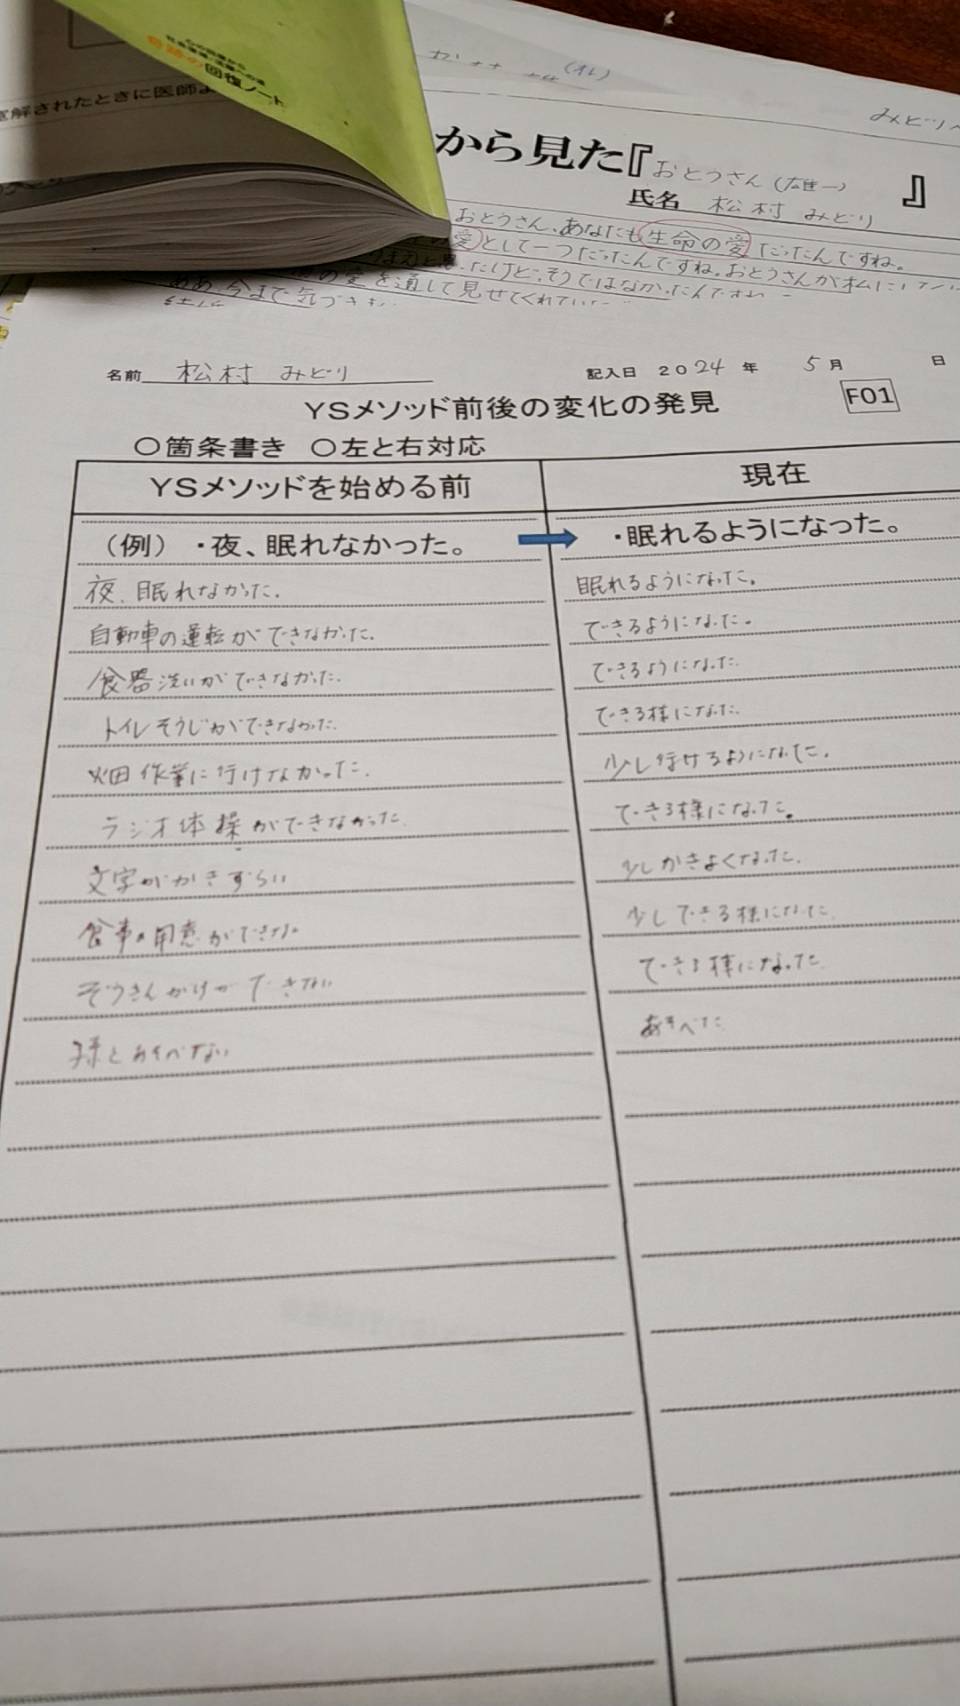 奇跡の回復ノート
寛解されたときに医師よ
(れ)
みどりへ
から見た『おとうさん(雄一) 』
氏名 松村 みどり
おとうさん、あなたも生命の愛だったんですね。
愛として一つだったんですね。おとうさんが私に
の愛を通して見せてくれていた
ああ、今まで気づき
名前 松村 みどり 記入日 2024 年 5月 日
YSメソッド前後の変化の発見 F01
○箇条書き ○左と右対応
YSメソッドを始める前 現在
(例) ・夜、眠れなかった。 ・眠れるようになった。
夜、眠れなかった。 眠れるようになった。
自動車の運転ができなかった。 できるようになった。
食器洗いができなかった. できるようになった.
トイレそうじができなかった. できる様になった.
畑作業に行けなかった. 少し行けるようになった.
ラジオ体操ができなかった. できる様になった。
文字がかきずらい 少しかきよくなった.
食事の用意ができない 少しできる様になった.
ぞうきんがけができない できる様になった.
孫とあそべない あそべた